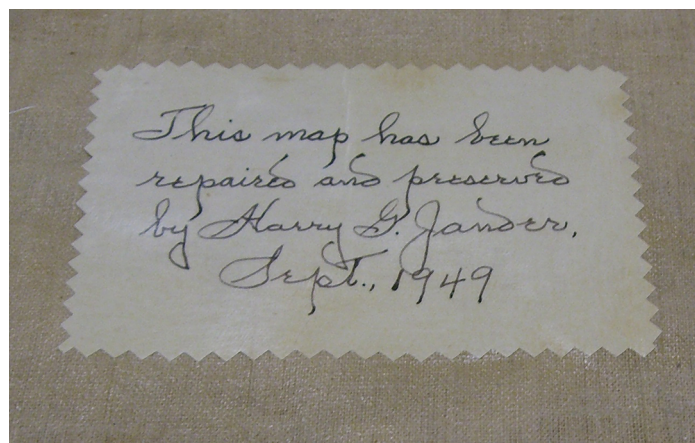 This map has been
repaired and preserved
by Harry G. Jander,
Sept., 1949